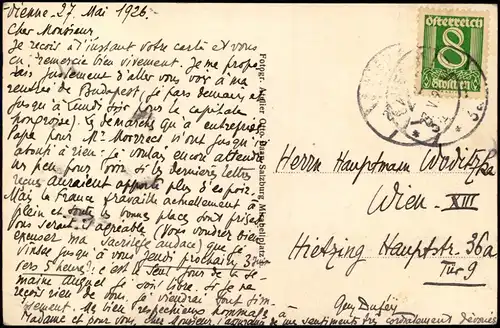 Vienne. 27. Mai 1926.
Cher Monsieur
Je reçois à l'instant votre carte et vous
en remercie bien vivement. Je me propo-
sais justement d'aller vous voir à ma
rentrée de Budapest, je pars demain et
jusqu'à lundi soir pour la capitale
hongroise. Les démarches qu'a entreprises
Papa pour Mr n'ont jusqu'ici
abouti à rien. Je voulais encore attendre
un peu pour voir si les dernières lettres
reçues auraient apporté plus d'espoir.
Mais la France travaille actuellement à
plein et toutes les bonnes places sont prises.
Vous serait-il agréable (Vous voudrez bien
excuser ma audace) que je
vinsse jusqu'à vous jeudi prochain 3
vers 5 heures; c'est le seul jour de la se-
maine auquel je sois libre. Si je ne
reçois rien de vous, je viendrai tout sim-
plement. Mes bien respectueux hommages à
Madame et pour vous, cher Monsieur l'assurance de mes sentiments très cordialement dévoués
Guy
Fotogr. Atelier Salzburg, Mirabellplatz
Österreich
8
Groschen
Herrn Hauptmann
Wien
XIII
Hietzing Hauptstr. 36a
Tür 9